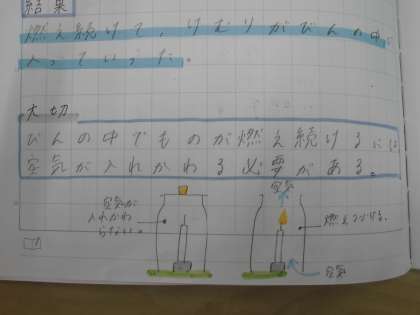 結果
燃え続けて、けむりがびんの中に
入っていった。
大切
びんの中でものが燃え続けるには
空気が入れかわる必要がある。
空気が
入れかわ
らない。
空気
燃えつづける。
空気